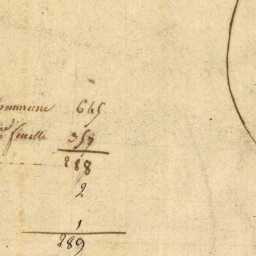 commune 645
feuille 357
288
2
1
289